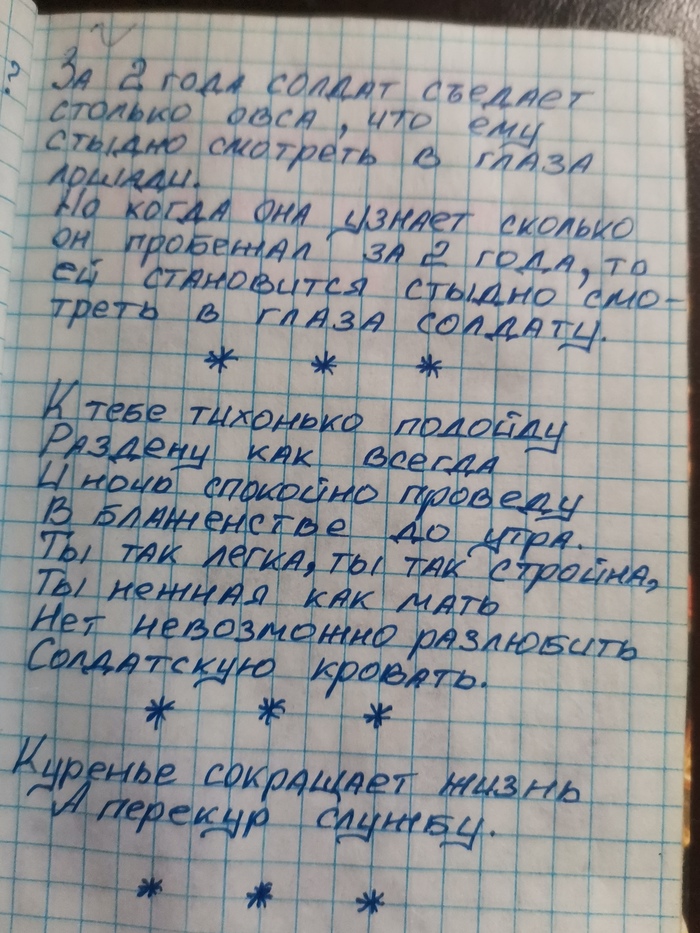 ?
За 2 года солдат съедает
столько овса, что ему
стыдно смотреть в глаза
лошади.
Но когда она узнает сколько
он пробежал за 2 года, то
ей становится стыдно смо-
треть в глаза солдату.
* * *
К тебе тихонько подойду
Раздену как всегда
И ночь спокойно проведу
В блаженстве до утра.
Ты так легка, ты так стройна,
Ты нежная как мать
Нет невозможно разлюбить
Солдатскую кровать.
* * *
Куренье сокращает жизнь
А перекур службу.
* * *